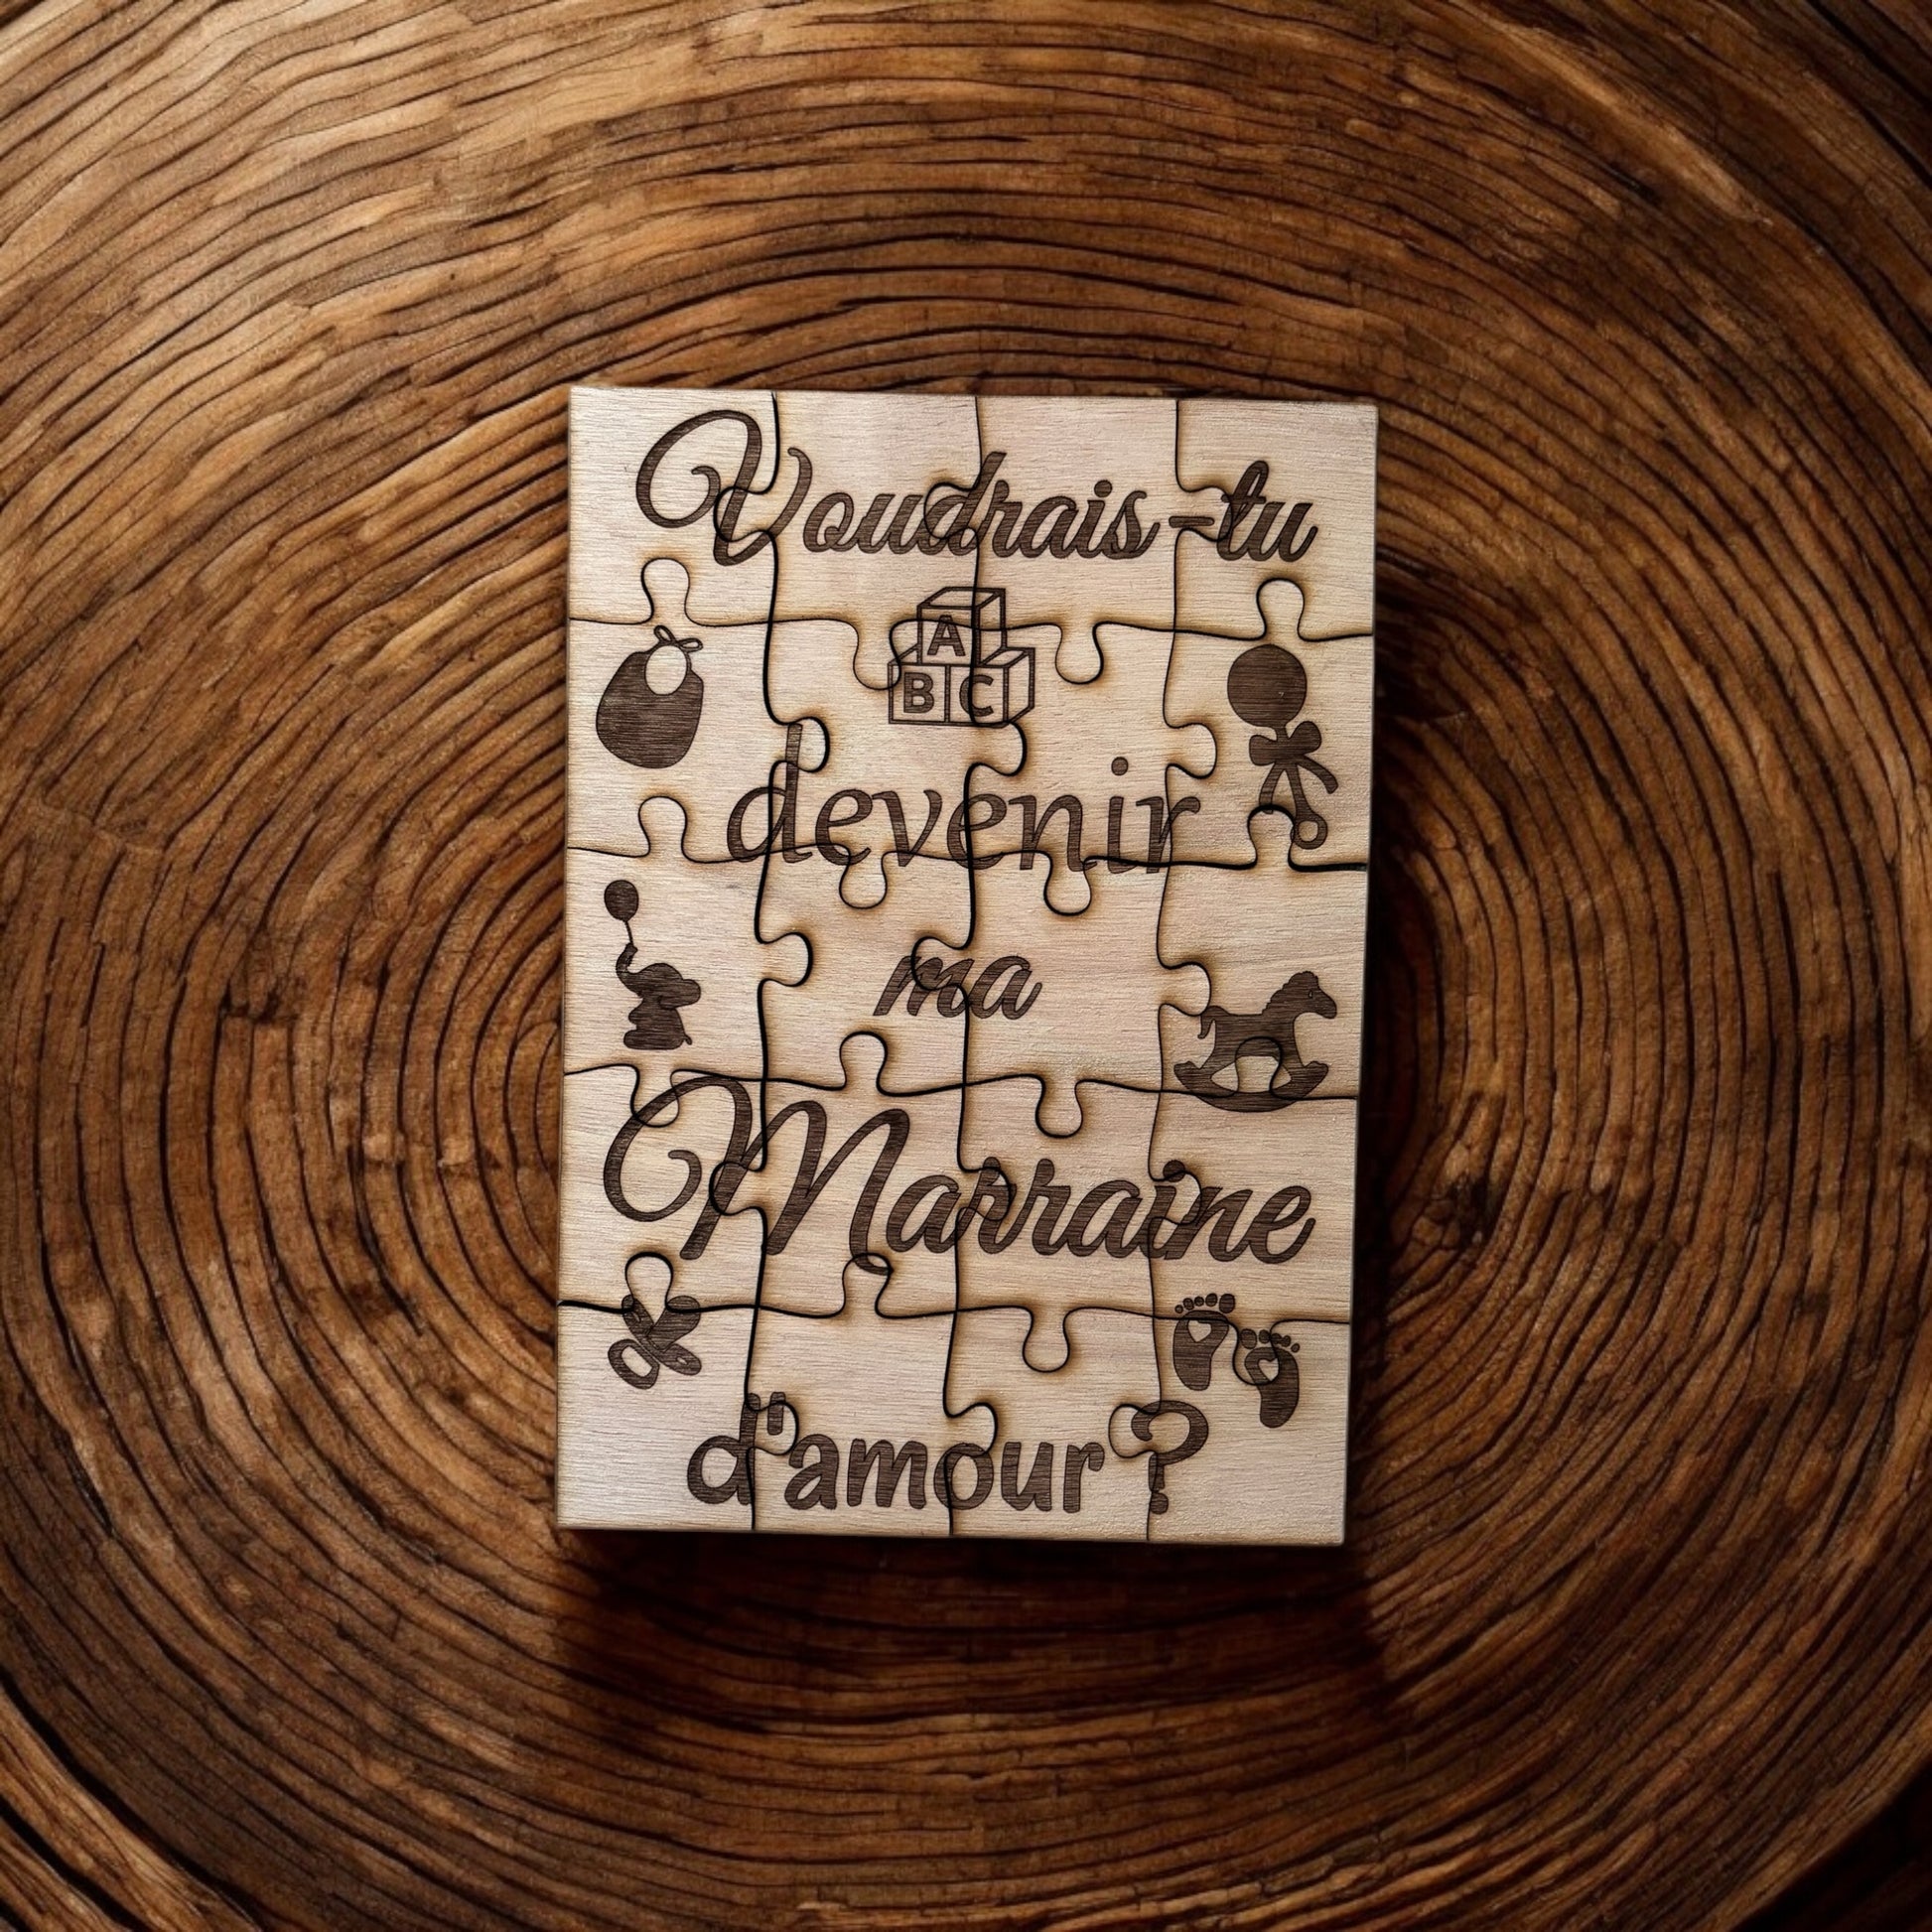 Voudrais-tu
A
B C
devenir
ma
Marraine
d'amour ?